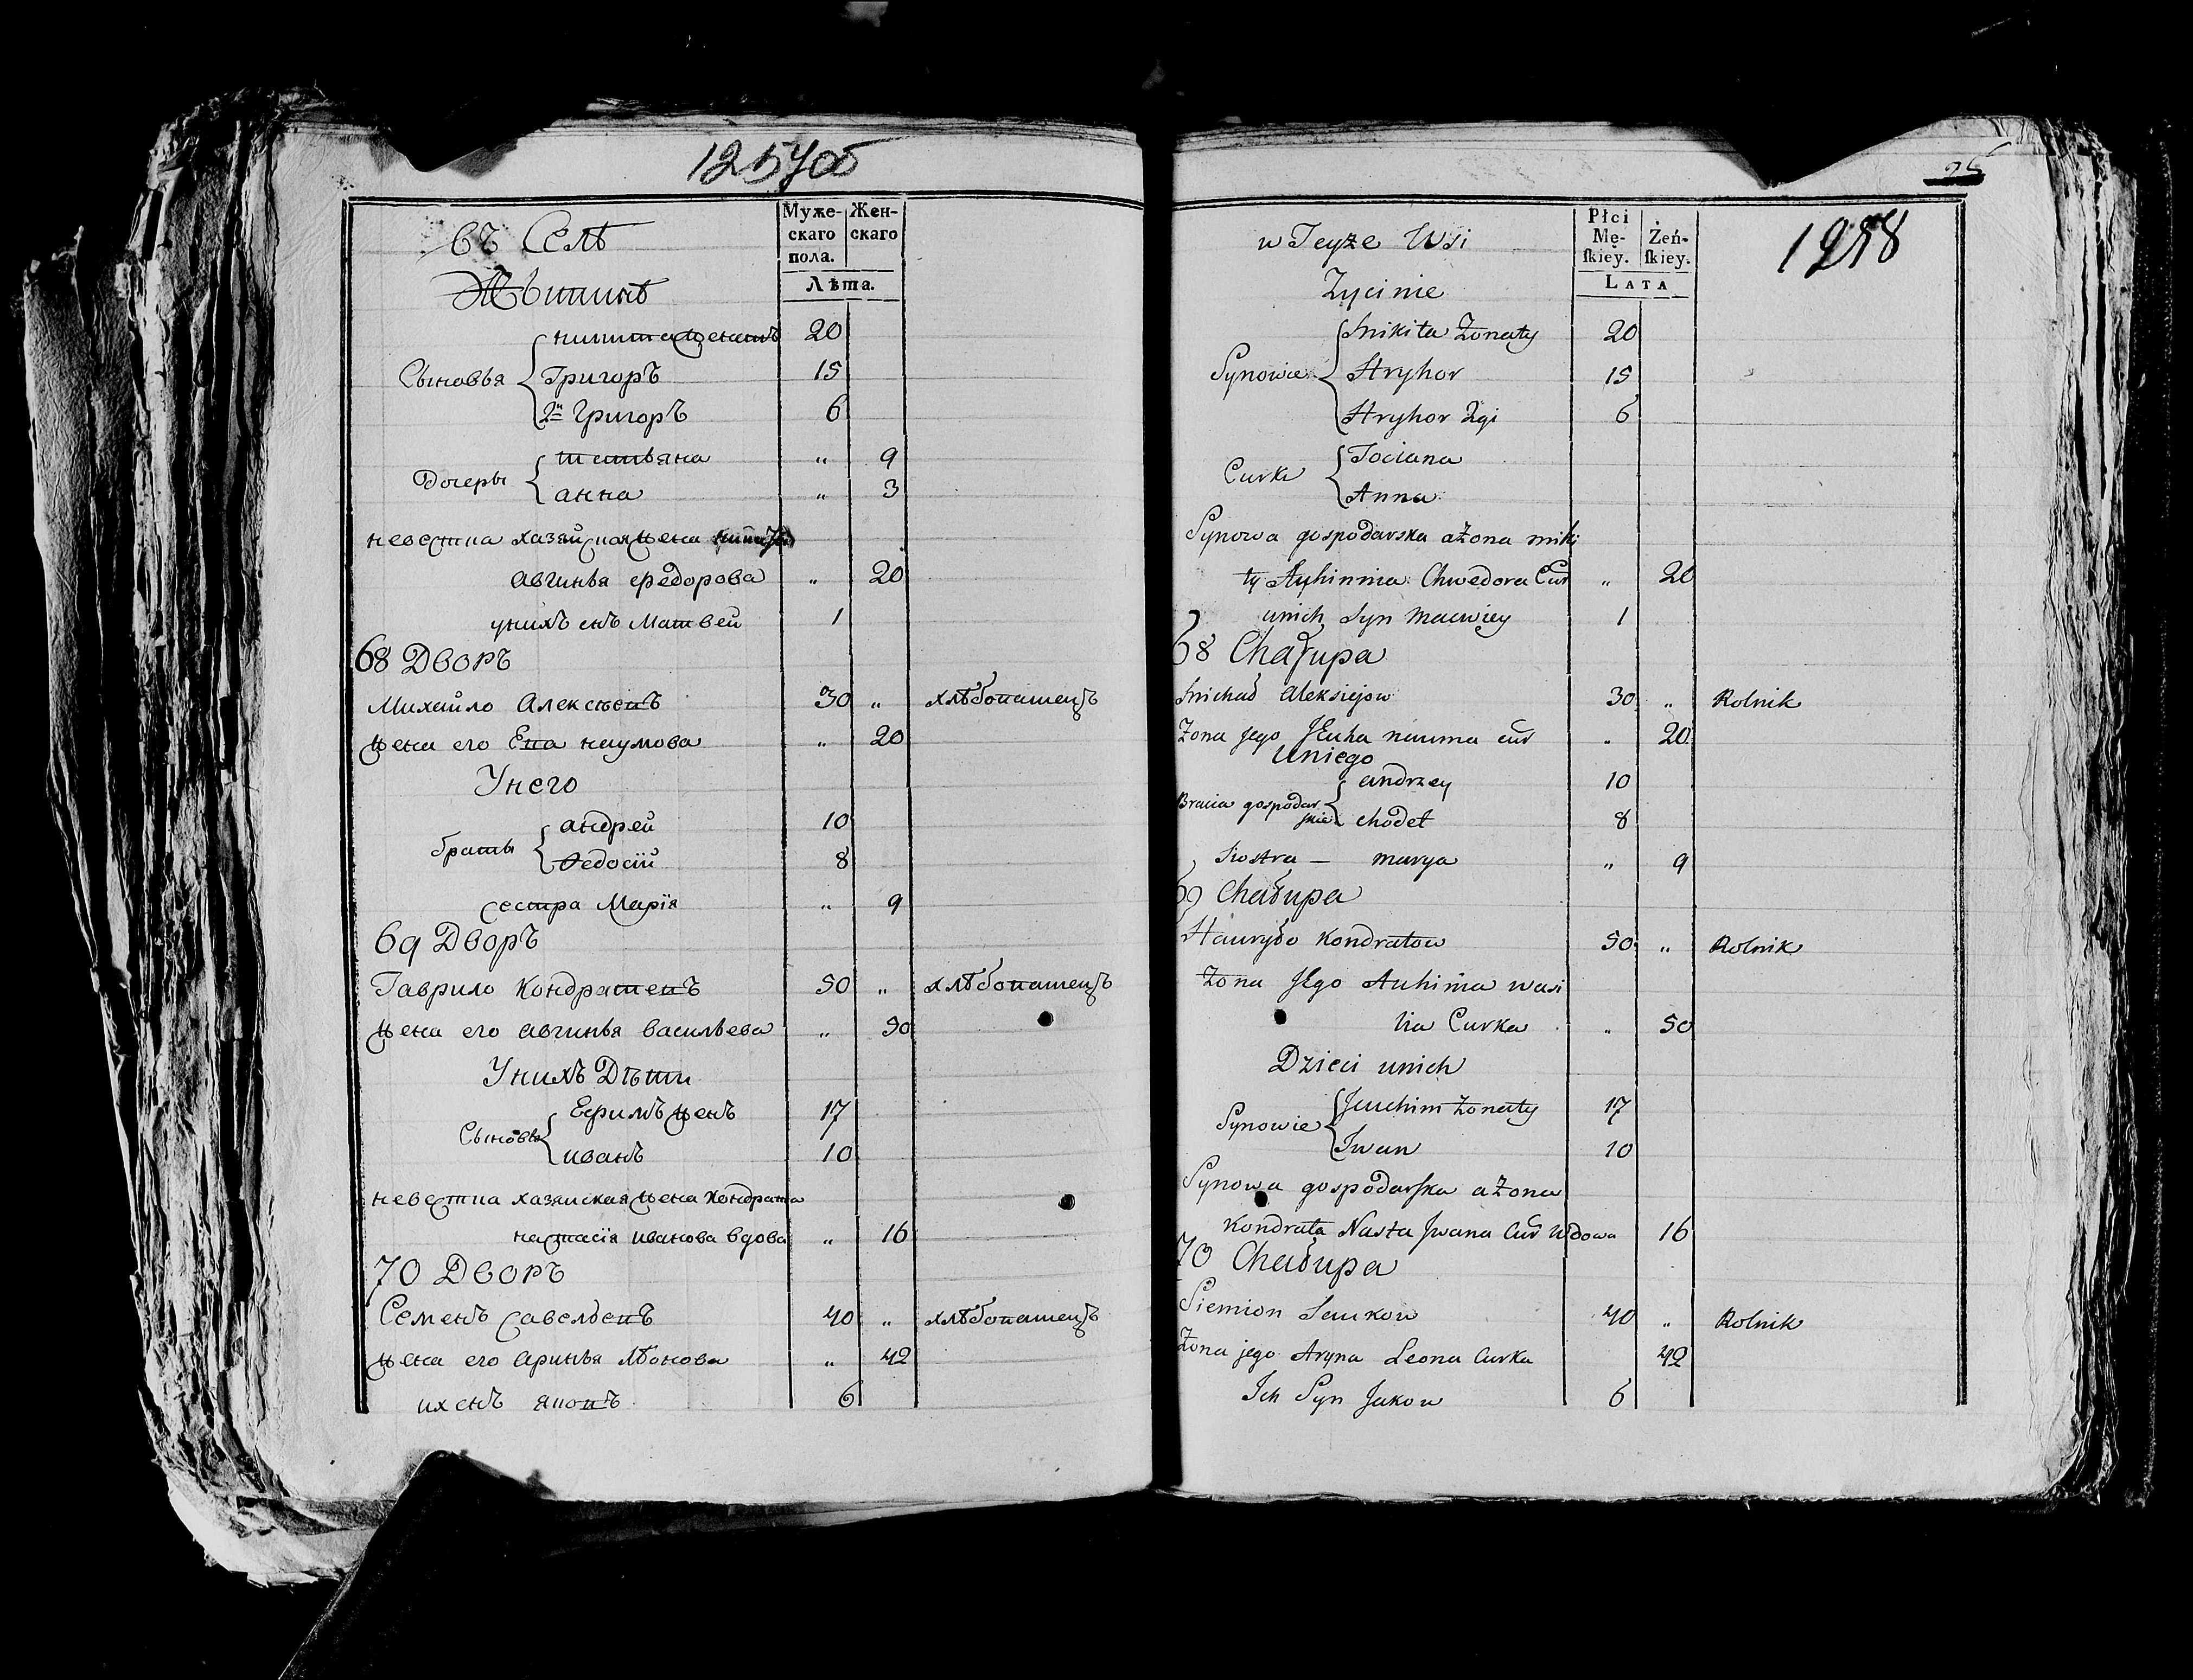 1257об
въ Селѣ
Жытинѣ
Муже-
скаго
пола.
Жен-
скаго
Лѣта.
Сыновья
никита женатъ 20
Григоръ 15
2й Григоръ 6
Дочеры
тетьяна " 9
анна " 3
невестка хазяйская жена
авгинья федорова " 20
унихъ снъ Матвей 1
68 Дворъ
Михайло Алексеевъ 30 " хлѣбопашецъ
жена его наумова " 20
Унего
браты
андрей 10
Федосiй 8
сестра Марiя " 9
69 Дворъ
Гаврило Кондратевъ 50 " хлѣбопашецъ
жена его авгинья васильева " 50
Унихъ Дѣти
Сыновья
Ефимъ женъ 17
иванъ 10
невестка хазяйская жена кондрата
настасiя иванова вдова " 16
70 Дворъ
Семенъ савельевъ 40 " хлѣбопашецъ
жена его аринья лѣонова " 42
их снъ яковъ 6
w Teyże Wsi
Zycinie
Płci
Mę-
ſkiey.
Żeń-
ſkiey.
LATA
1258
Synowie
Mikita Żonaty 20
Hryhor 15
Hryhor 2gi 6
Curki
Tociana
Anna
Synowa gospodarska a Żona miki
ty Auhinnia Chwedora Cur " 20
unich Syn Maciwiey 1
68 Chałupa
Michał Aleksiejow 30 " Rolnik
Żona jego nauma cur " 20
Uniego
Bracia gospodar
skie
andrzey 10
chodet 8
Siostra — marya " 9
69 Chałupa
Hauryło Kondratow 50 " Rolnik
Żona Jego Auhinia wasi
lia Curka " 50
Dzieci unich
Synowie
Jauchim Żonaty 17
Iwan 10
Synowa gospodarſka a Żona
Kondrata Nasta Jwana Cur Wdowa 16
70 Chałupa
Siemion Saukow 40 " Rolnik
Żona jego Aryna Leona Curka 42
Ich Syn Jakow 6